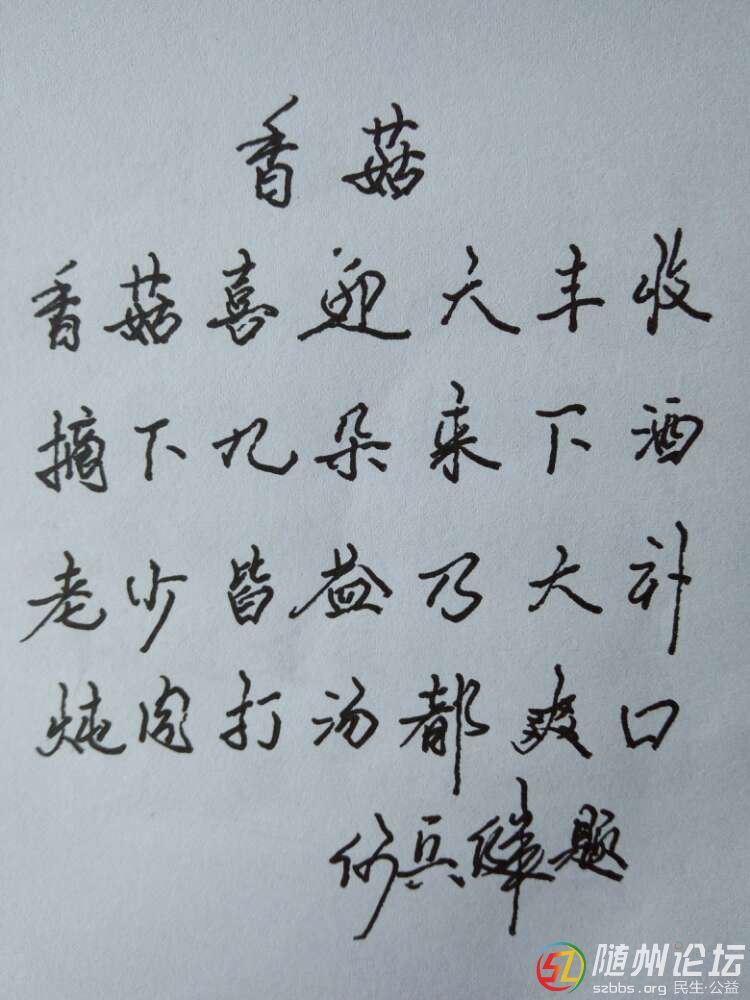 香菇
香菇喜迎大丰收
摘下九朵来下酒
老少皆益乃大补
炖肉打汤都爽口
兵 题
随州论坛
szbbs.org 民生·公益